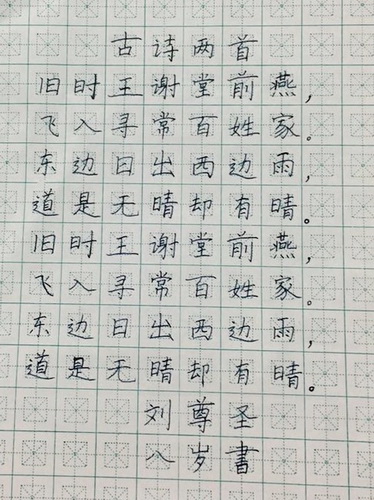 古诗两首
旧时王谢堂前燕，
飞入寻常百姓家。
东边日出西边雨，
道是无晴却有晴。
旧时王谢堂前燕，
飞入寻常百姓家。
东边日出西边雨，
道是无晴却有晴。
刘尊圣
八岁書